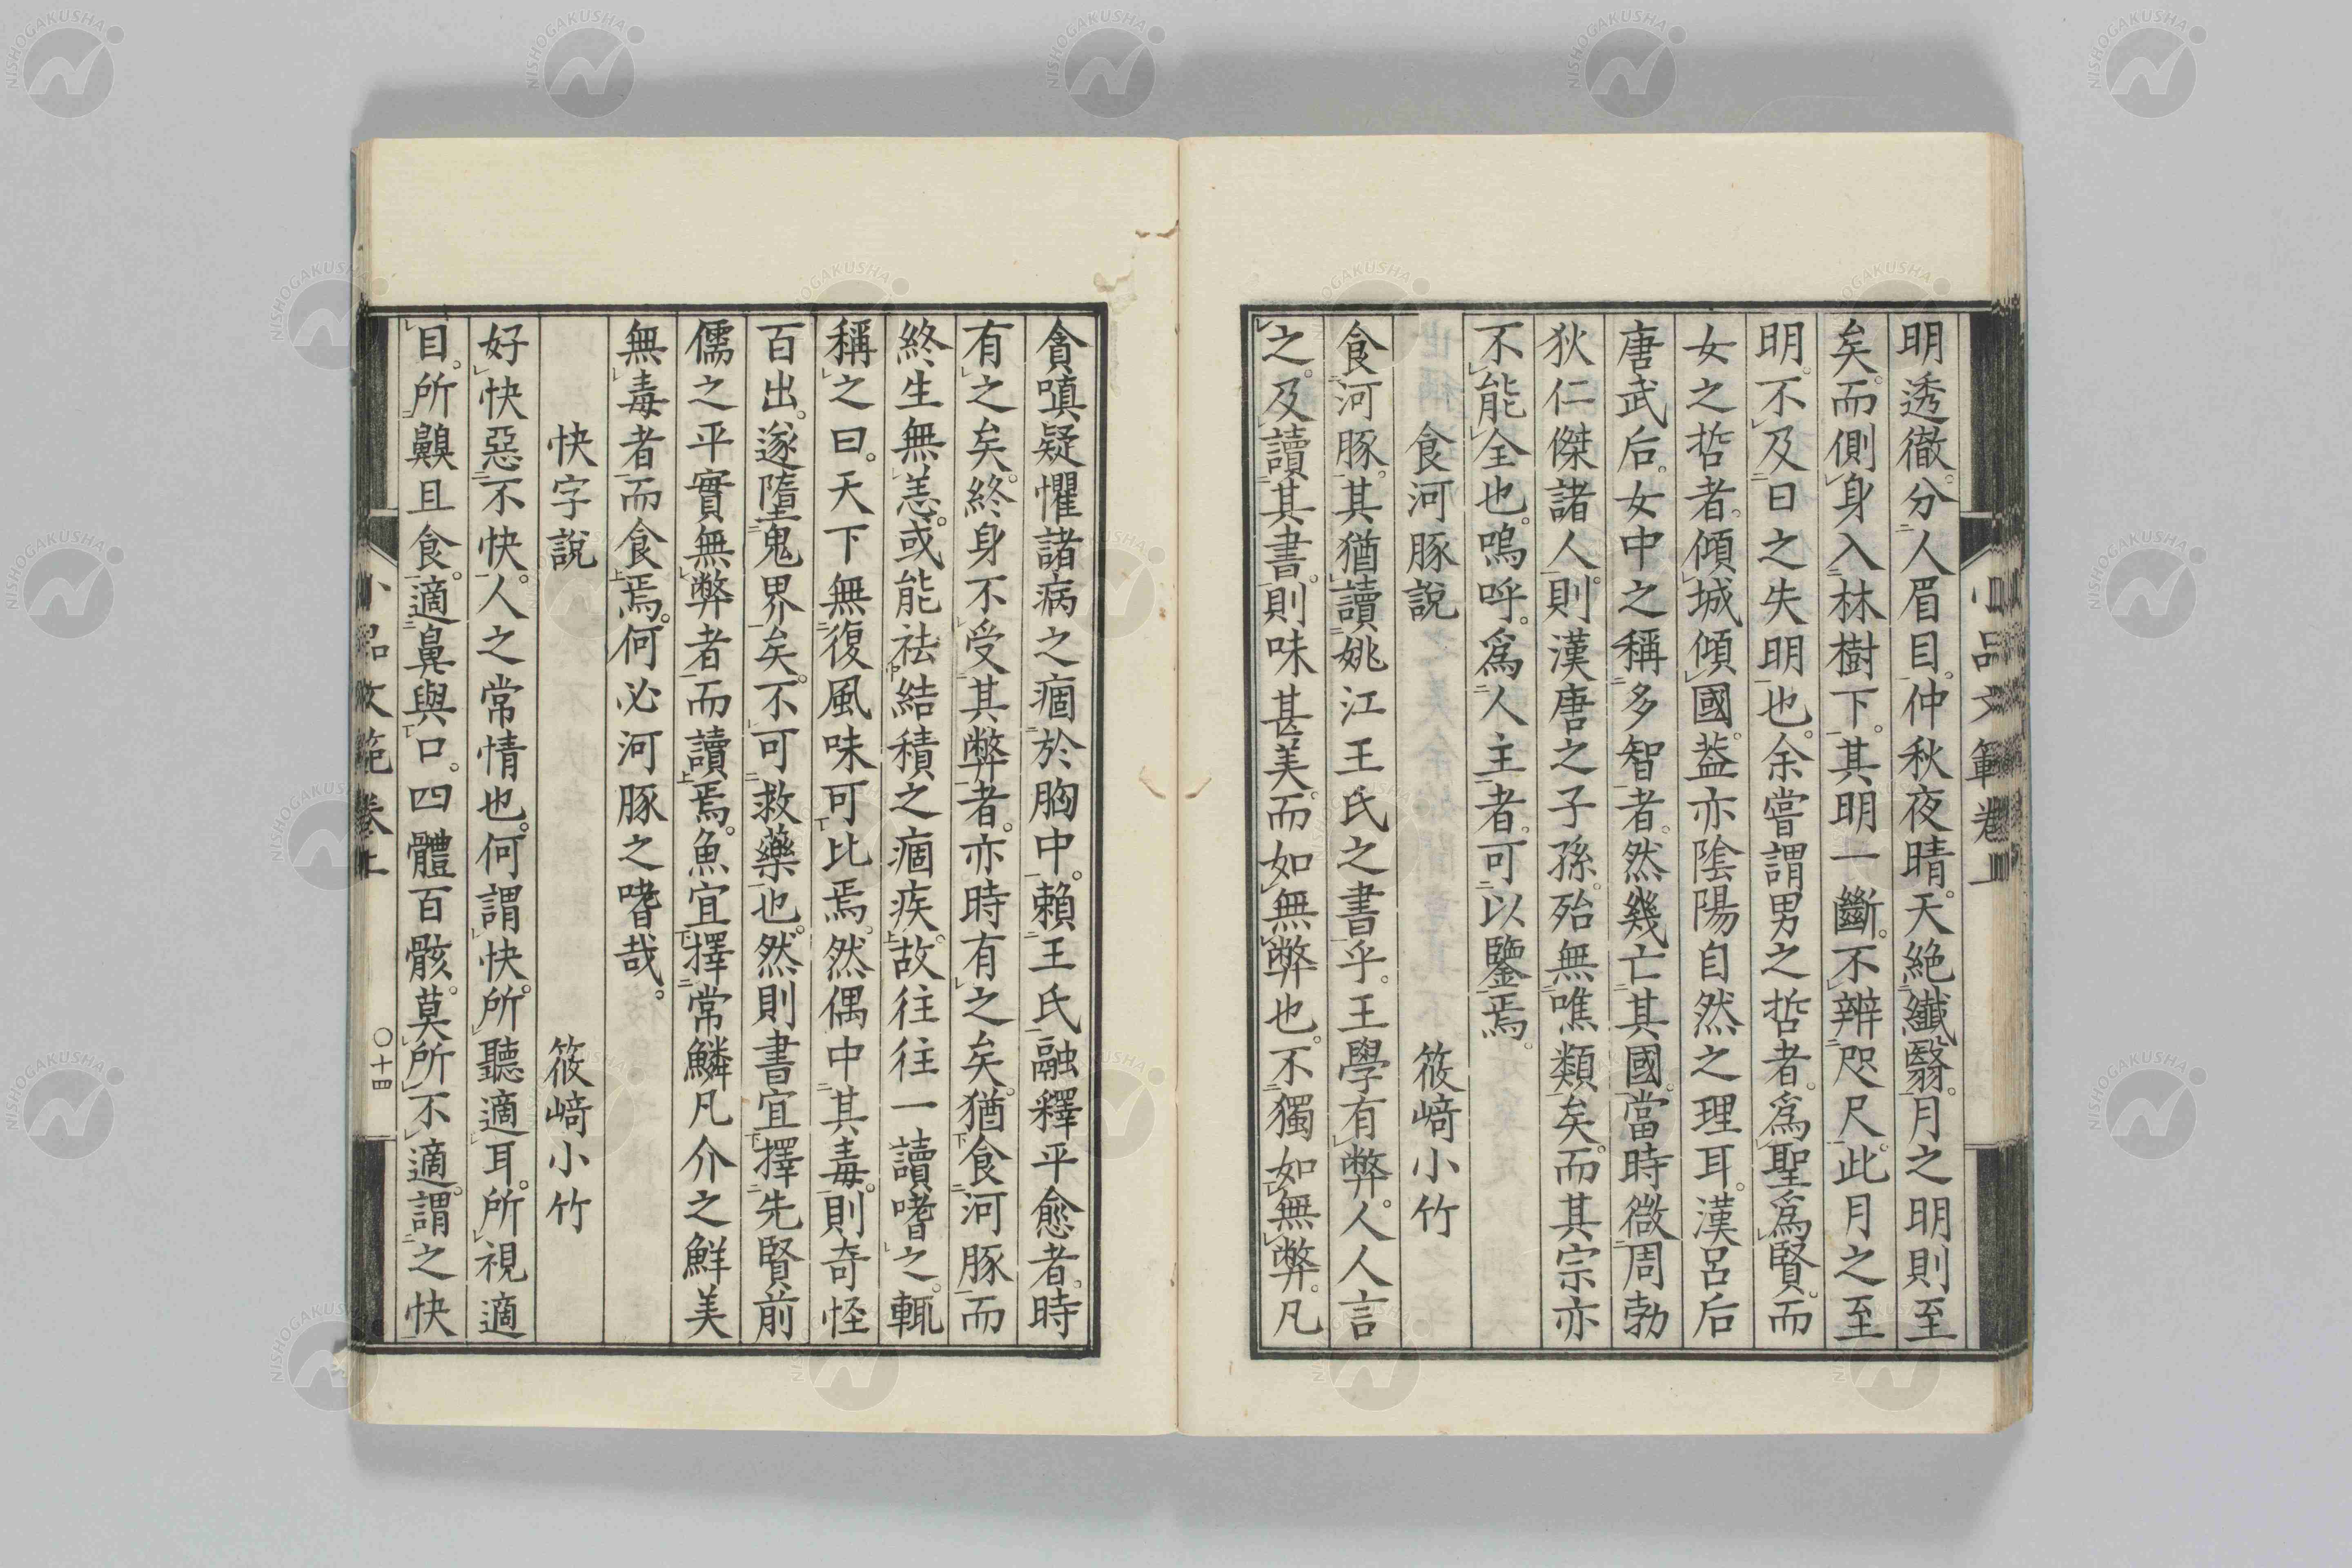 明透徹。分人眉目。仲秋夜晴。天絶纖翳。月之明則至
矣。而側身入林樹下。其明一斷。不辨咫尺。此月之至
明。不及日之失明也。余嘗謂男之哲者。爲聖爲賢。而
女之哲者。傾城傾國。益亦陰陽自然之理耳。漢呂后
唐武后。女中之稱多智者。然幾亡其國。當時微周勃
狄仁傑諸人。則漢唐之子孫。殆無噍類矣。而其宗亦
不能全也。嗚呼。爲人主者。可以鑒焉。
食河豚說 筱﨑小竹
食河豚。其猶讀姚江王氏之書乎。王學有弊。人人言
之。及讀其書。則味甚美。而如無弊也。不獨如無弊。凡
小品文範卷上
貪嗔疑懼諸病之痼於胸中。賴王氏融釋平愈者。時
有之矣。終身不受其弊者。亦時有之矣。猶食河豚而
終生無恙。或能祛結積之痼疾。故往往一讀嗜之。輒
稱之曰。天下無復風味可比焉。然偶中其毒。則奇怪
百出。遂墮鬼界矣。不可救藥也。然則書宜擇先賢前
儒之平實無弊者而讀焉。魚宜擇常鱗凡介之鮮美
無毒者而食焉。何必河豚之嗜哉。
快字說 筱﨑小竹
好快惡不快。人之常情也。何謂快。所聽適耳。所視適
目。所齅且食。適鼻與口。四體百骸。莫所不適。謂之快
小品文範卷上 〇十四
NISHOGAKUSHA